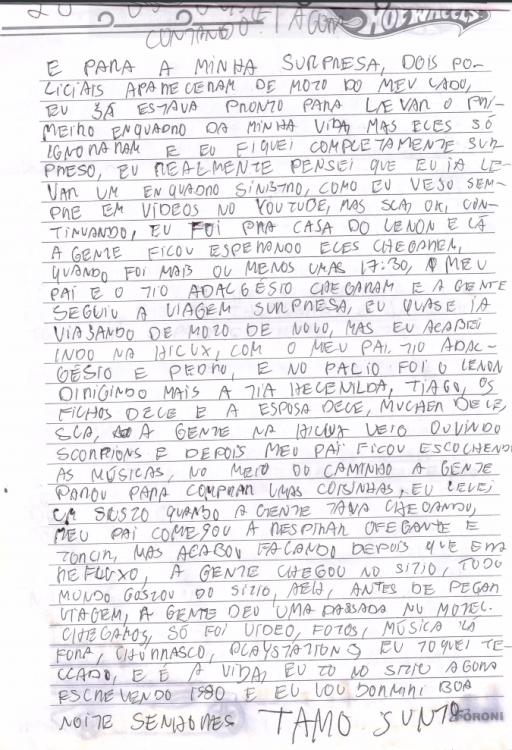 HOT WHEELS
CONTANDO. AGORA
E PARA A MINHA SURPRESA, DOIS PO-
LICIAIS APARECERAM DE MOTO DO MEU LADO,
EU JÁ ESTAVA PRONTO PARA LEVAR O PRI-
MEIRO ENQUADRO DA MINHA VIDA, MAS ELES SÓ
IGNORARAM E EU FIQUEI COMPLETAMENTE SUR
PRESO, EU REALMENTE PENSEI QUE EU IA LE-
VAR UM ENQUADRO SINISTRO, COMO EU VEJO SEM-
PRE EM VÍDEOS NO YOUTUBE, MAS SLA, OK, CON-
TINUANDO, EU FOI PRA CASA DO LENON E LÁ
A GENTE FICOU ESPERANDO ELES CHEGAREM,
QUANDO FOI MAIS OU MENOS UMAS 17:30, O MEU
PAI E O TIO ADALGÉSIO CHEGARAM E A GENTE
SEGUIU A VIAGEM SURPRESA, EU QUASE IA
VIAJANDO DE MOTO DE NOVO, MAS EU ACABEI
INDO NA HILUX, COM O MEU PAI, TIO ADAL-
GÉSIO E PEDRO, E NO PALIO FOI O LENON
DIRIGINDO MAIS A TIA HELENILDA, TIAGO, OS
FILHOS DELE E A ESPOSA DELE, MULHER DELE,
SLA, A GENTE NA HILUX VEIO OUVINDO
SCORPIONS E DEPOIS MEU PAI FICOU ESCOLHENDO
AS MÚSICAS, NO MEIO DO CAMINHO A GENTE
PAROU PARA COMPRAR UMAS COISINHAS, EU LEVEI
UM SUSTO QUANDO A GENTE TAVA CHEGANDO,
MEU PAI COMEÇOU A RESPIRAR OFEGANTE E
TORCIR, MAS ACABOU FALANDO DEPOIS QUE ERA
REFLUXO, A GENTE CHEGOU NO SITIO, TODO
MUNDO GOSTOU DO SITIO, AEH, ANTES DE PEGAR
VIAGEM, A GENTE DEU UMA PASSADA NO MOTEL.
CHEGAMOS, SÓ FOI VIDEO, FOTOS, MÚSICA LÁ
FORA, CHURRASCO, PLAYSTATION, EU TOQUEI TE-
CLADO, E É A VIDA, EU TO NO SITIO AGORA
ESCREVENDO ISSO E EU VOU DORMIR! BOA
NOITE SENHORES TAMO JUNTO
FORONI